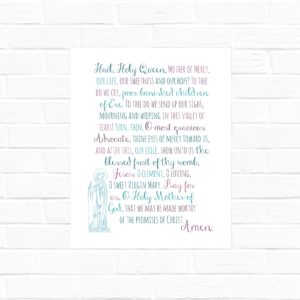 Hail, Holy Queen, Mother of Mercy,
our life, our sweetness and our hope! To thee
do we cry, poor banished children
of Eve. To thee do we send up our sighs,
mourning and weeping in this valley of
tears! Turn, then, O most gracious
Advocate, thine eyes of mercy toward us,
and after this, our exile, show unto us the
blessed fruit of thy womb,
Jesus. O clement, O loving,
O sweet Virgin Mary. Pray for
us, O Holy Mother of
God, that we may be made worthy
of the promises of Christ.
Amen